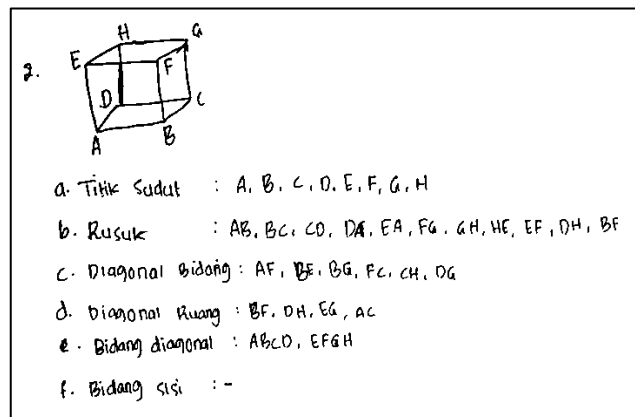 2.
H G
E F
D C
A B
a. Titik Sudut : A, B, C, D, E, F, G, H
b. Rusuk : AB, BC, CD, DA, EA, FG, GH, HE, EF, DH, BF
c. Diagonal Bidang : AF, BE, BG, FC, CH, DG
d. Diagonal Ruang : BF, DH, EG, AC
e. Bidang diagonal : ABCD, EFGH
f. Bidang sisi : -